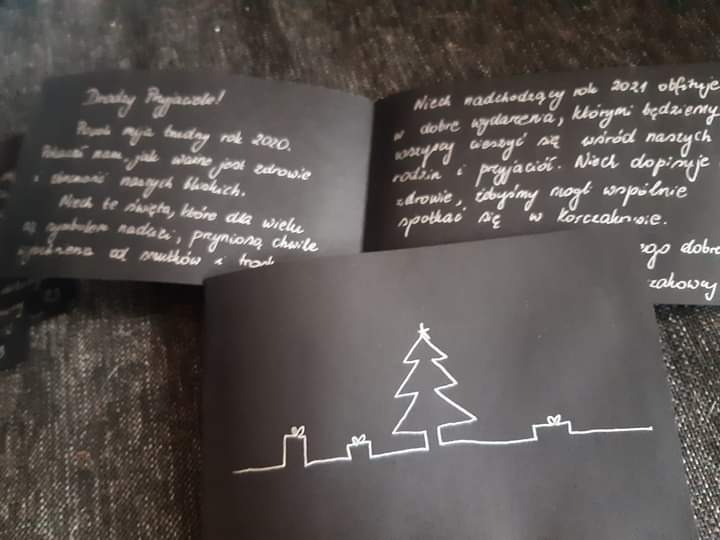 Drodzy Przyjaciele!
mija trudny rok 2020.
nam, jak ważne jest zdrowie
i obecność naszych bliskich.
Niech te święta, które dla wielu
są symbolem nadziei, przyniosą chwile
od smutków i
Niech nadchodzący rok 2021 obfituje
w dobre wydarzenia, którymi będziemy
wszyscy cieszyć się wśród naszych
rodzin i przyjaciół. Niech dopisuje
zdrowie, żebyśmy mogli wspólnie
spotkać się w Korczakowie.
ego dobre
zakowcy